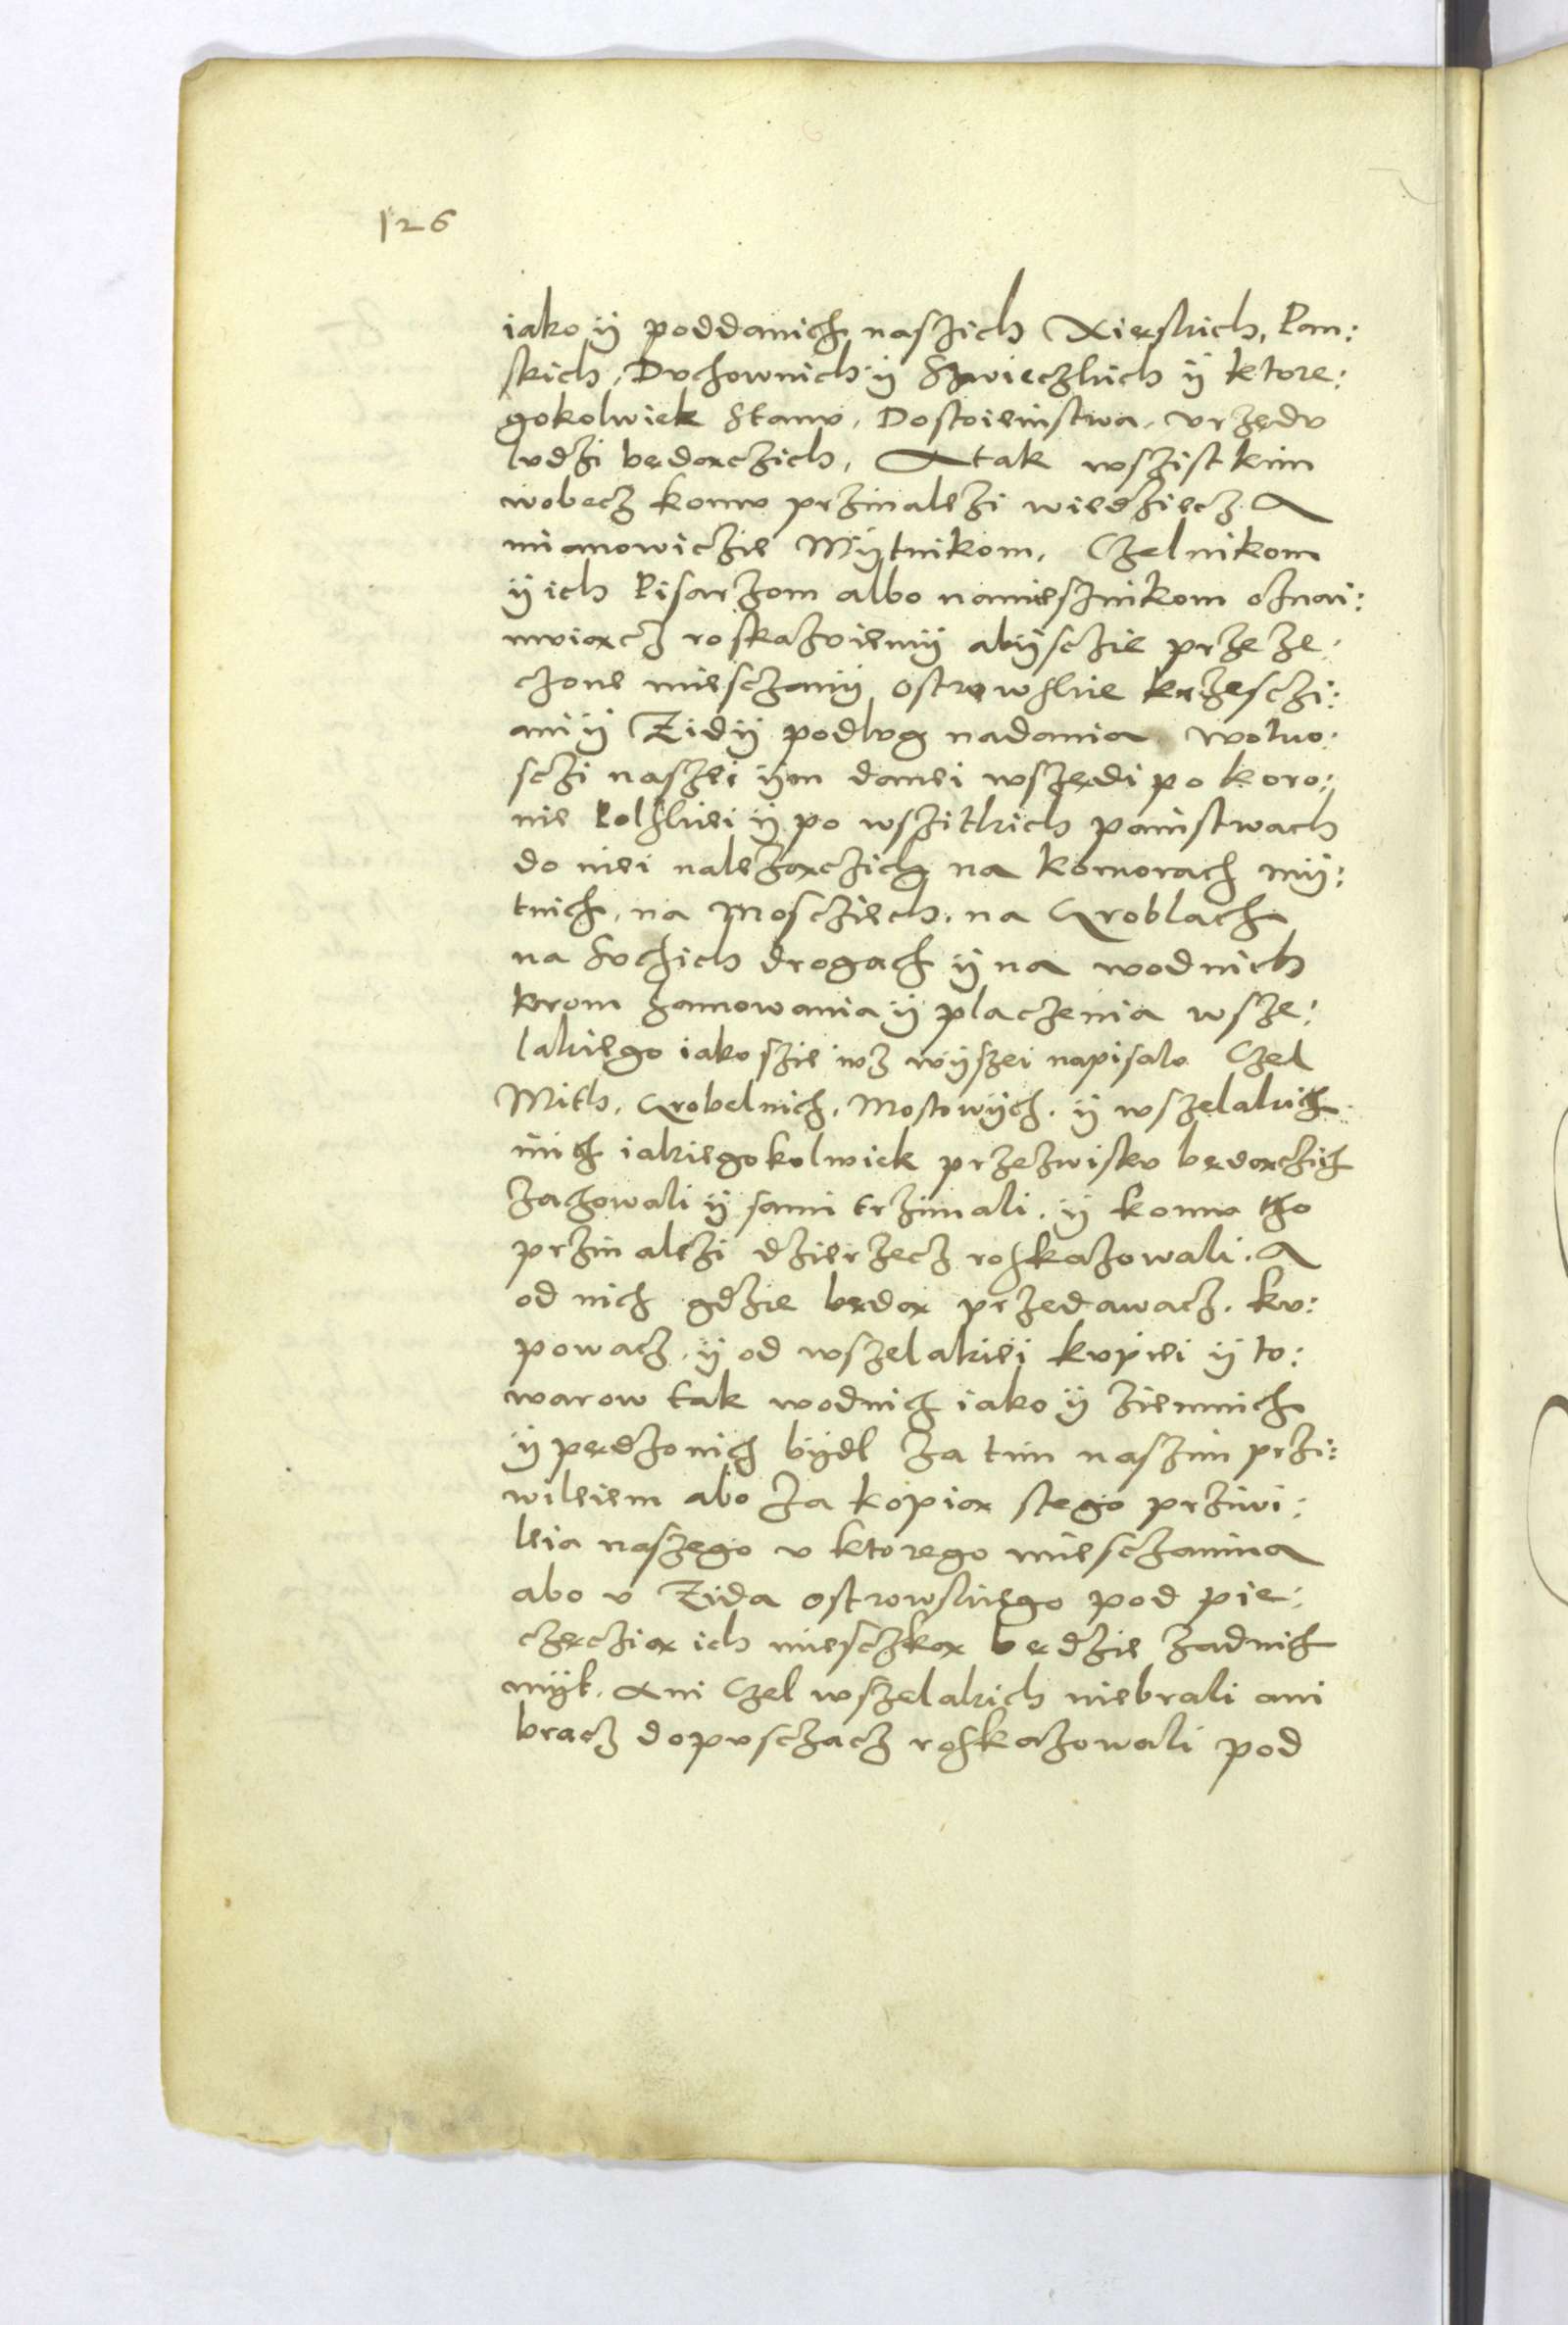 126
iako ÿ poddanich naszich Xięskich, Pan:
skich, Duchownich ÿ Szwieczkich ÿ ktore:
gokolwiek Stanv, Dostoieinstwa, vrzędv
lvdzi będącziсh, A tak wszistkim
wobecz komv przinalezi wiedziecz. A
mianowiczie Mÿtnikom, Czelnikom
ÿ ich Pisarzom albo namiesznikom oznai:
mviącz roskazviemÿ abÿsczie przeze:
czone miesczanÿ ostrowskie krzesczi:
ani ÿ Zidÿ podlvg nadania wolno:
sczi naszei ÿm danei wszędi po koro:
nie Polskiei ÿ po wszitkich painstwach
do niei należączich na komorach mÿ:
tnich, na Moscziech, na Groblach
na Svchich drogach ÿ na wodnich
krom hamowania ÿ placzenia wsze:
lakiego iako szie ivz wÿszei napisalo Czel
Mith, Grobelnich, Mostowÿch, ÿ wszelakich
inich iakiegokolwiek przezwiskv będączich
zachowali ÿ sami trzimali, ÿ komv tho
przinalezi dzierzecz roskazowali. A
od nich gdzie będą przedawacz, kv:
powacz, ÿ od wszelakiei kvpiei ÿ to:
warow tak wodnich iako ÿ ziemnich
ÿ pędzonich bÿdl za tim naszim przi:
wileiem abo za kopią stego przivi:
leia naszego v ktorego miesczanina
abo v Zida ostrowskiego pod pie:
częczią ich mieszką będzie zadnich
mÿt, Ani Czel wszelakich niebrali ani
bracz dopvsczacz roskazowali pod